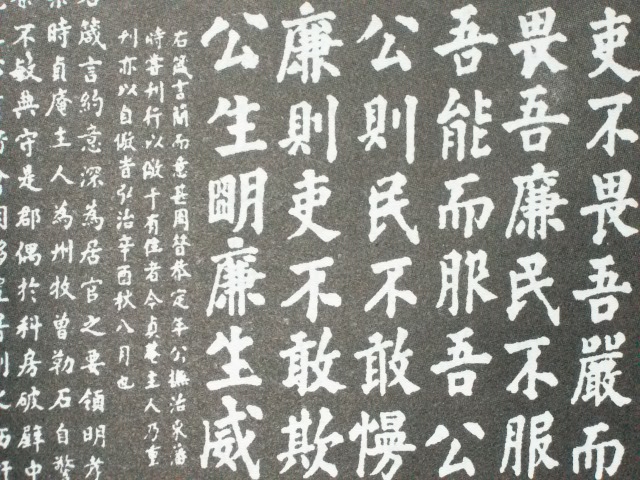 吏不畏吾嚴而
畏吾廉民不服
吾能而服吾公
公則民不敢慢
廉則吏不敢欺
公生朙廉生威
右箴言簡而意甚周昔恭定年公撫治東藩
時嘗刊行以儆于有位者今貞菴主人乃重
刊亦以自儆者弘治辛酉秋八月也
箴言約意深為居官之要領明孝
時貞庵主人為州牧曾勒石自警
不敏典守是郡偶於科房破壁中